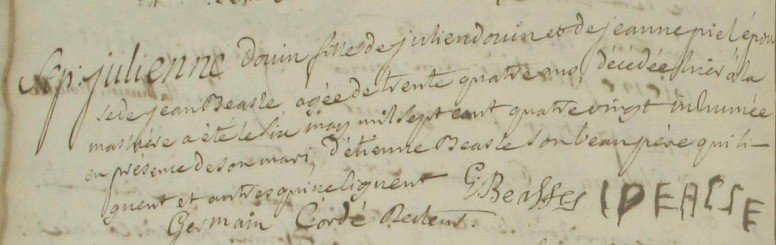 Sep: julienne douin fille de julien douin et de jeanne piel épou
se de jean Beasle agée de trente quatre ans, décédée hier à la
masière a été le six may mil sept cent quatre vingt inhumée
en présence de son mari, d'étienne Beasle son beau père qui si-
gnent et autres qui ne signent
Germain Cordé Recteur.